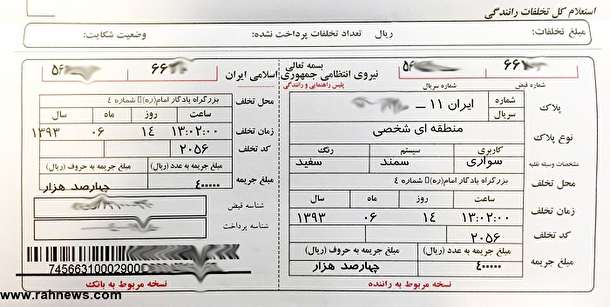 استعلام کل تخلفات رانندگی
مبلغ تخلفات: ریال تعداد تخلفات پرداخت نشده: وضعیت شکایت:
بسمه تعالی
نیروی انتظامی جمهوری اسلامی ایران
پلیس راهنمایی و رانندگی
شماره قبض
شماره سریال
پلاک
شماره
سریال
ایران ۱۱ –
نوع پلاک
منطقه ای شخصی
مشخصات وسیله نقلیه
کاربری سیستم رنگ
سواری سمند سفید
محل تخلف
بزرگراه یادگار امام(ره) شماره ۴
زمان تخلف
ساعت روز ماه سال
۱۳:۰۲:۰۰ ۱۴ ۰۶ ۱۳۹۳
کد تخلف
۲۰۵۶
مبلغ جریمه
مبلغ جریمه به عدد (ریال) مبلغ جریمه به حروف (ریال)
۴۰۰۰۰۰ چهارصد هزار
نسخه مربوط به راننده
۶۶
۵۶
محل تخلف
بزرگراه یادگار امام(ره) شماره ۴
زمان تخلف
ساعت روز ماه سال
۱۳:۰۲:۰۰ ۱۴ ۰۶ ۱۳۹۳
کد تخلف
۲۰۵۶
مبلغ جریمه
مبلغ جریمه به عدد (ریال) مبلغ جریمه به حروف (ریال)
۴۰۰۰۰۰ چهارصد هزار
شناسه قبض
شناسه پرداخت
74566310002900
نسخه مربوط به بانک
www.rahnews.com